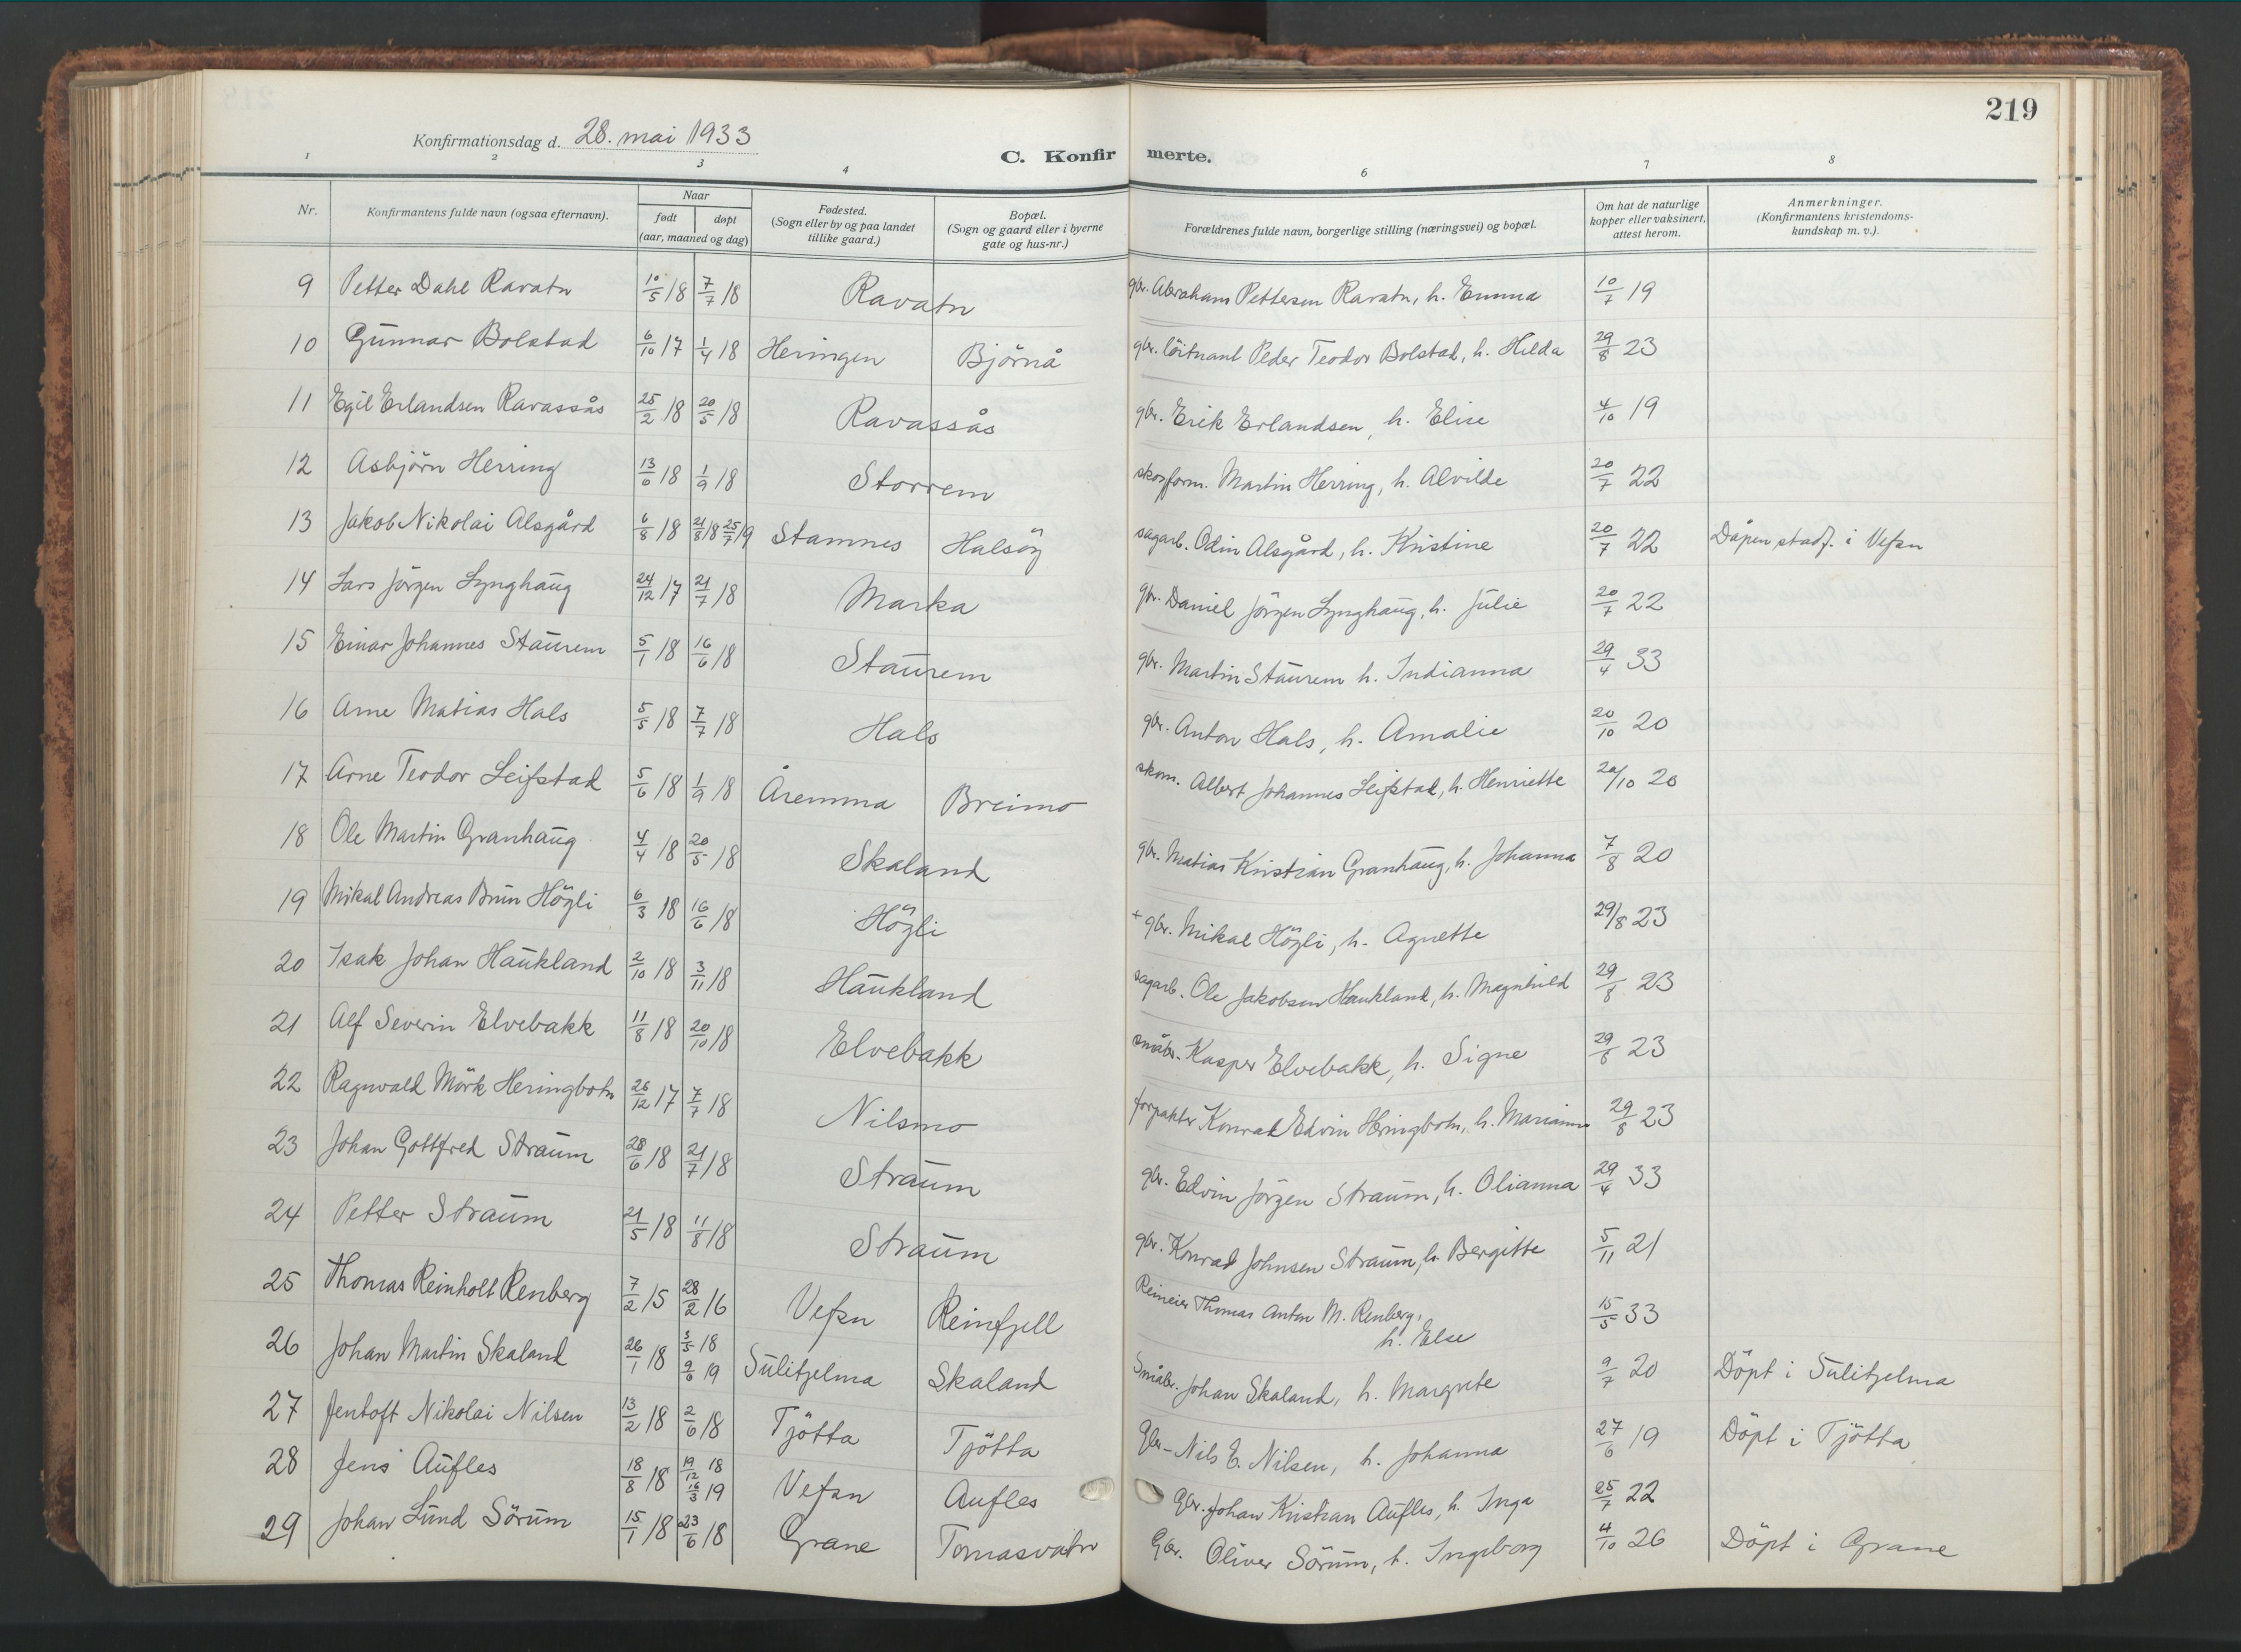 219
Konfirmationsdag d. 28. mai 1933
C. Konfirmerte.
1 2 3 4 6 7 8
Nr. | Konfirmantens fulde navn (ogsaa efternavn). | Naar født døpt (aar, maaned og dag) | Fødested. (Sogn eller by og paa landet tillike gaard.) | Bopæl. (Sogn og gaard eller i byerne gate og hus-nr.) | Forældrenes fulde navn, borgerlige stilling (næringsvei) og bopæl. | Om hat de naturlige kopper eller vaksinert, attest herom. | Anmerkninger. (Konfirmantens kristendoms-kundskap m. v.).
9 Petter Dahl Ravatn 10/5 18 7/7 18 Ravatn gbr. Abraham Pettersen Ravatn, h. Emma 10/7 19
10 Gunnar Bolstad 6/10 17 1/4 18 Heringen Björnå gbr. löitnant Peder Teodor Bolstad, h. Hilda 29/8 23
11 Egil Erlandsen Ravassås 25/2 18 20/5 18 Ravassås gbr. Erik Erlandsen, h. Elise 4/10 19
12 Asbjörn Herring 13/6 18 1/9 18 Storrem skogform. Martin Herring, h. Alvilde 20/7 22
13 Jakob Nikolai Alsgård 6/8 18 21/8 18 25/7 19 Stamnes Halsöy sagarb. Odin Alsgård, h. Kristine 20/7 22 Dåpen stadf. i Vefsn
14 Lars Jörgen Lynghaug 24/12 17 21/7 18 Marka gbr. Daniel Jörgen Lynghaug, h. Julie 20/7 22
15 Einar Johannes Staurem 5/1 18 16/6 18 Staurem gbr. Martin Staurem h. Indianna 29/4 33
16 Arne Matias Hals 5/5 18 7/7 18 Hals gbr. Anton Hals, h. Amalie 20/10 20
17 Arne Teodor Leifstad 5/6 18 1/9 18 Åremma Breimo skom. Albert Johannes Leifstad, h. Henriette 20/10 20
18 Ole Martin Granhaug 4/4 18 20/5 18 Skaland gbr. Matias Kristian Granhaug, h. Johanna 7/8 20
19 Mikal Andreas Brun Högli 6/3 18 16/6 18 Högli + gbr. Mikal Högli, h. Agnette 29/8 23
20 Isak Johan Haukland 2/10 18 3/11 18 Haukland sagarb. Ole Jakobsen Haukland, h. Magnhild 29/8 23
21 Alf Severin Elvebakk 11/8 18 20/10 18 Elvebakk småbr. Kasper Elvebakk, h. Signe 29/8 23
22 Ragnvald Mörk Heringbotn 26/12 17 7/7 18 Nilsmo forpakter Konrad Edvin Heringbotn, h. Marianne 29/8 23
23 Johan Gottfred Straum 28/6 18 21/7 18 Straum gbr. Edvin Jörgen Straum, h. Olianna 29/4 33
24 Petter Straum 21/5 18 11/8 18 Straum gbr. Konrad Johnsen Straum, h. Bergitte 5/11 21
25 Thomas Reinholt Renberg 7/2 15 28/2 16 Vefsn Reinfjell Reineier Thomas Anton M. Renberg,
h. Else 15/5 33
26 Johan Martin Skaland 26/1 18 3/5 18 9/6 19 Sulitjelma Skaland Småbr. Johan Skaland, h. Margrete 9/7 20 Döpt i Sulitjelma
27 Jentoft Nikolai Nilsen 13/2 18 2/6 18 Tjötta Tjötta Gbr. Nils E. Nilsen, h. Johanna 27/6 19 Döpt i Tjötta
28 Jens Aufles 18/8 18 19/12 18 16/3 19 Vefsn Aufles Gbr. Johan Kristian Aufles, h. Inga 25/7 22
29 Johan Lund Sörum 15/1 18 23/6 18 Grane Tomasvatn Gbr. Oliver Sörum, h. Ingeborg 4/10 26 Döpt i Grane